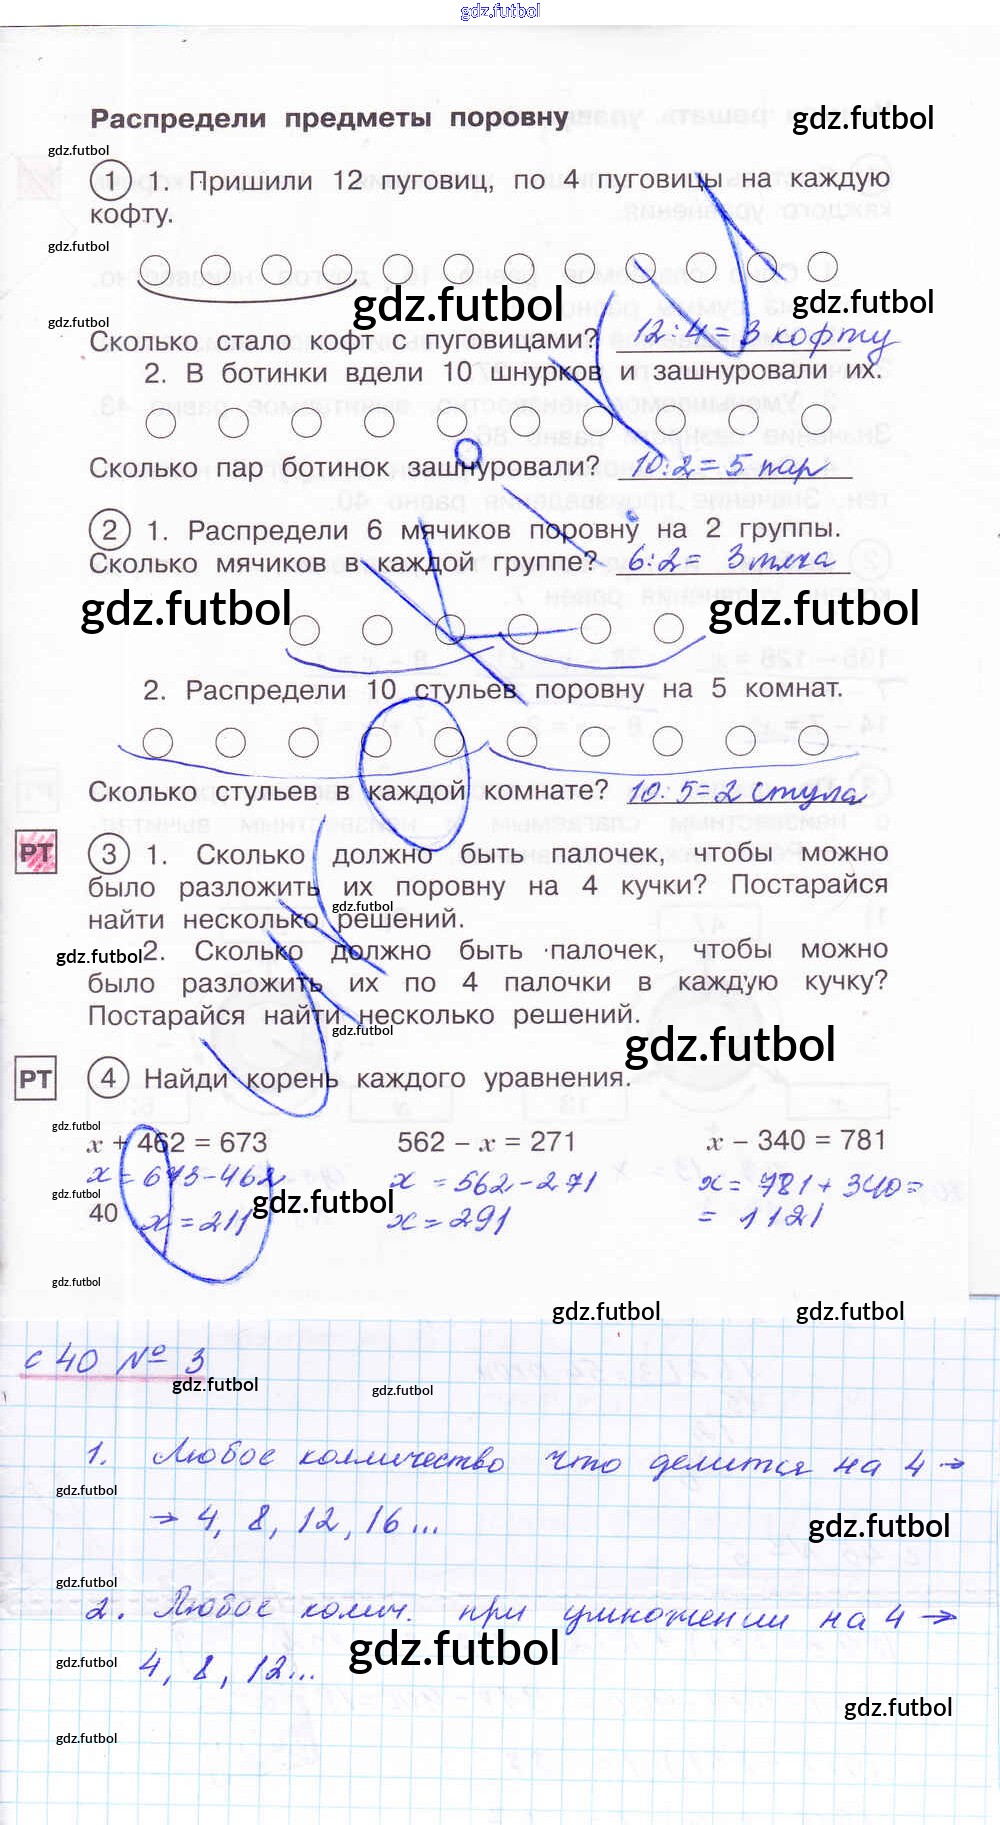 gdz.futbol
Распредели предметы поровну
gdz.futbol
gdz.futbol
1 1. Пришили 12 пуговиц, по 4 пуговицы на каждую
кофту.
gdz.futbol
gdz.futbol
gdz.futbol
gdz.futbol
Сколько стало кофт с пуговицами? 12:4=3 кофту
2. В ботинки вдели 10 шнурков и зашнуровали их.
Сколько пар ботинок зашнуровали? 10:2=5 пар
2 1. Распредели 6 мячиков поровну на 2 группы.
Сколько мячиков в каждой группе? 6:2= 3 мяча
gdz.futbol gdz.futbol
2. Распредели 10 стульев поровну на 5 комнат.
Сколько стульев в каждой комнате? 10:5=2 стула
РТ 3 1. Сколько должно быть палочек, чтобы можно
было разложить их поровну на 4 кучки? Постарайся
gdz.futbol
найти несколько решений.
gdz.futbol
2. Сколько должно быть палочек, чтобы можно
было разложить их по 4 палочки в каждую кучку?
Постарайся найти несколько решений.
gdz.futbol
gdz.futbol
РТ 4 Найди корень каждого уравнения.
gdz.futbol
x + 462 = 673 562 – x = 271 x – 340 = 781
x = 673-462 x = 562-271 x = 781+340=
gdz.futbol
gdz.futbol
40 x=211 x=291 = 1121
gdz.futbol
gdz.futbol gdz.futbol
с 40 № 3
gdz.futbol
gdz.futbol
1. Любое колличество что делится на 4 →
gdz.futbol
→ 4, 8, 12, 16...
gdz.futbol
gdz.futbol
2. Любое колич. при умножении на 4 →
gdz.futbol
gdz.futbol
4, 8, 12...
gdz.futbol
gdz.futbol